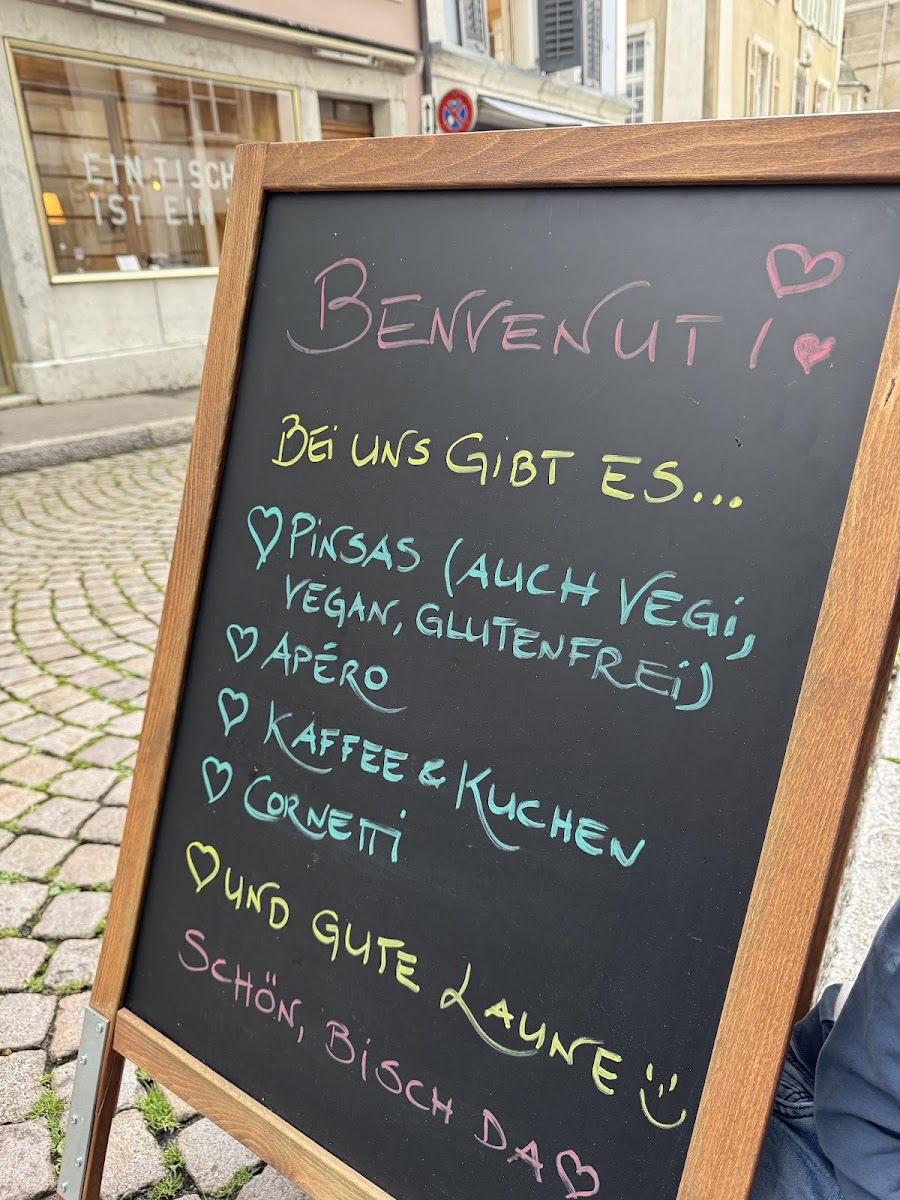 EIN TISCH
IST EIN
BENVENUTI
BEI UNS GIBT ES...
PINSAS (AUCH VEGI,
VEGAN, GLUTENFREI)
APÉRO
KAFFEE & KUCHEN
CORNETTI
UND GUTE LAUNE
SCHÖN, BISCH DA